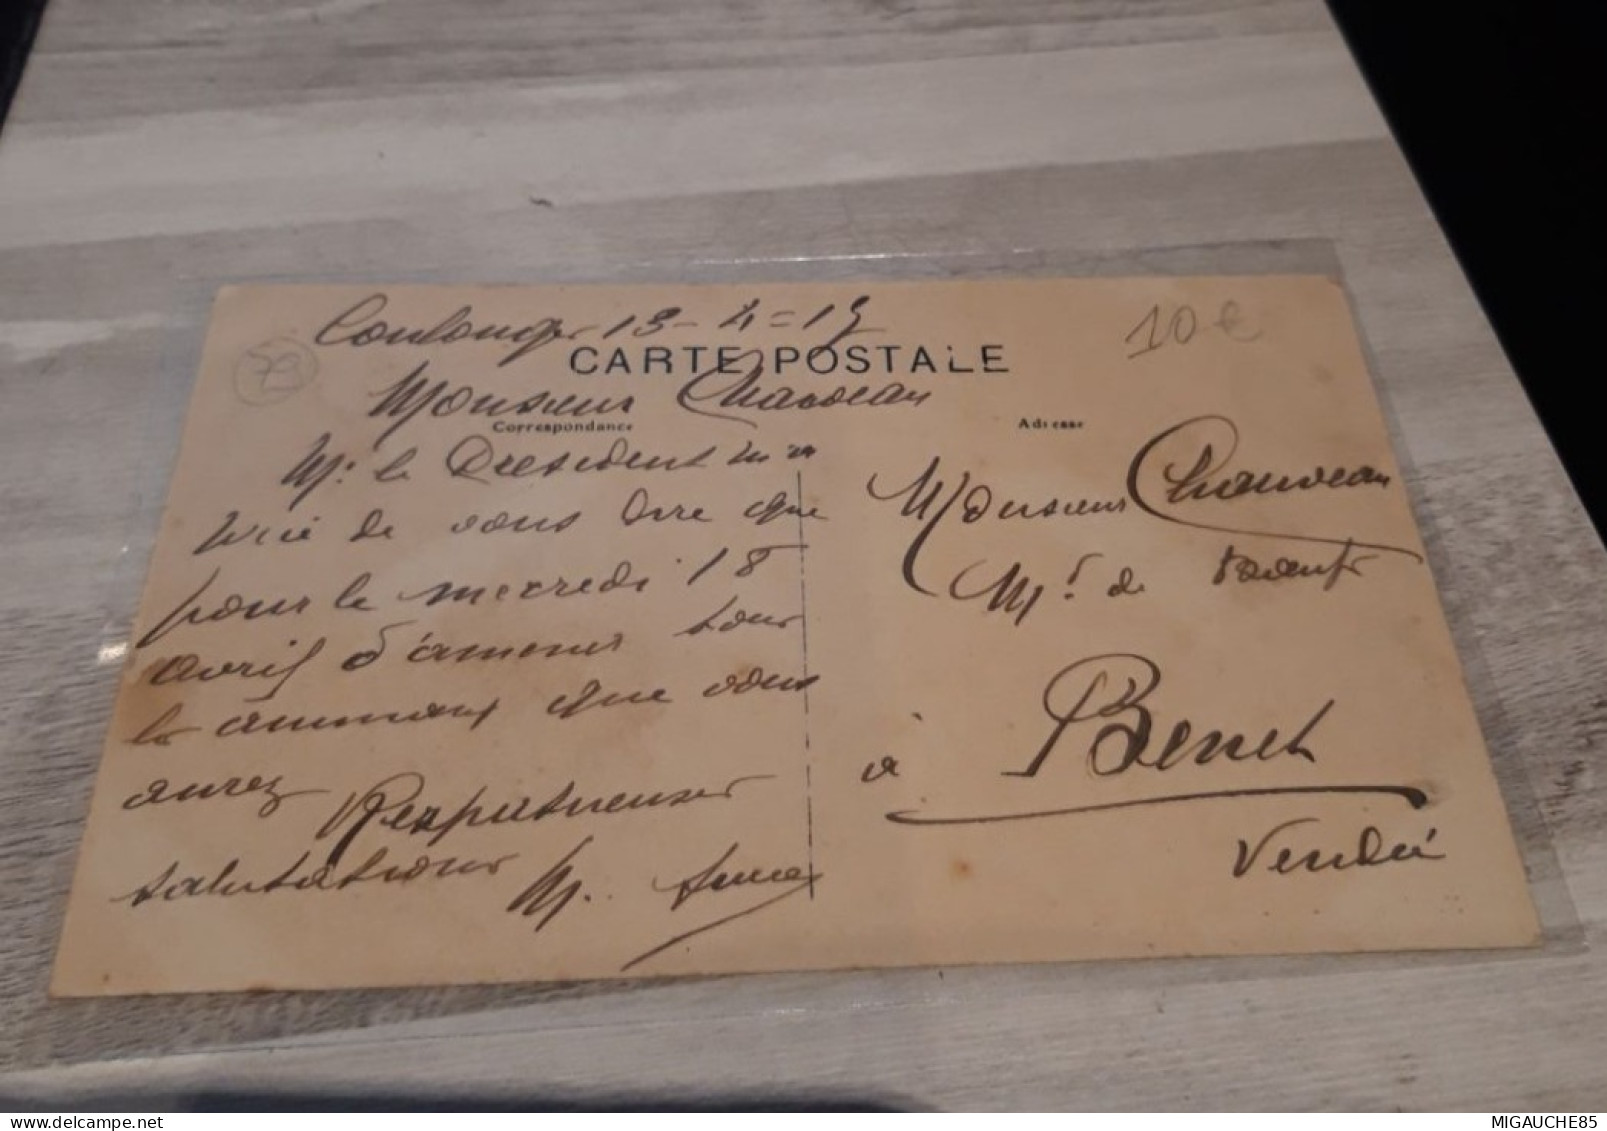 Coulonges 13-4=19
CARTE POSTALE
10 €
79
Monsieur Chauveau
Correspondance
Adresse
M. le President m'a
de vous dire que
pour le mercredi 18
avril d'amener tous
les animaux que vous
aurez
Respectueuses
salutations M.
Monsieur Chauveau
Md. de
à Benet
Vendée
MIGAUCHE85